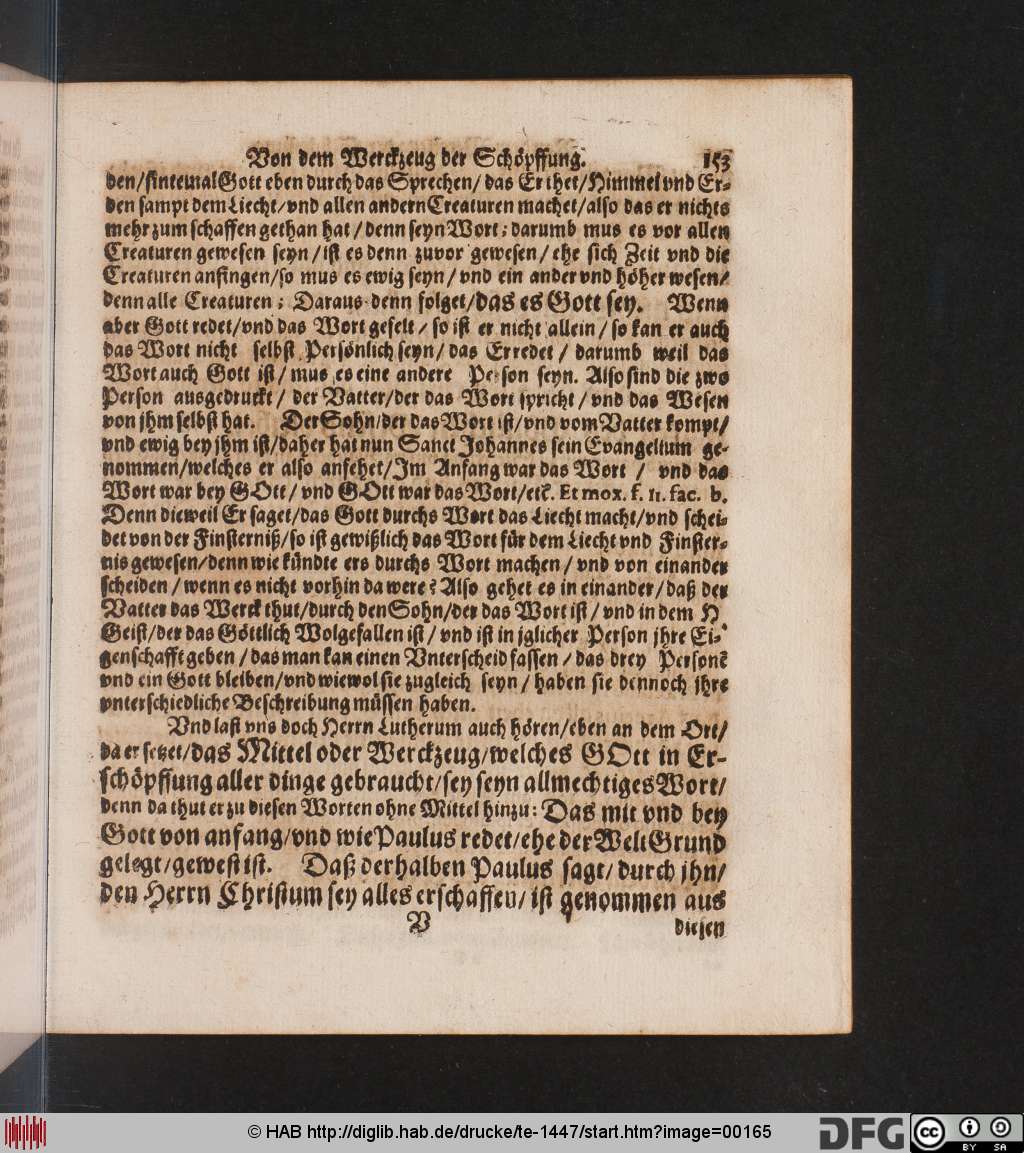 Von dem Werckzeug der Schöpffung. 153
den/sintemal Gott eben durch das Sprechen/ das Er thet/Himmel vnd Er-
den sampt dem Liecht/vnd allen andern Creaturen machet/also das er nichts
mehr zum schaffen gethan hat/ denn seyn Wort; darumb mus es vor allen
Creaturen gewesen seyn/ist es denn zuvor gewesen/ehe sich Zeit vnd die
Creaturen anfingen/so mus es ewig seyn/vnd ein ander vnd höher wesen/
denn alle Creaturen; Daraus denn folget/das es Gott sey. Wenn
aber Gott redet/vnd das Wort gefelt/ so ist er nicht allein/so kan er auch
das Wort nicht selbst Persönlich seyn/das Er redet/ darumb weil das
Wort auch Gott ist/mus es eine andere Person seyn. Also sind die zwo
Person ausgedruckt/ der Vatter/der das Wort spricht/vnd das Wesen
von jhm selbst hat. Der Sohn/der das Wort ist/vnd vom Vatter kompt/
vnd ewig bey jhm ist/daher hat nun Sanct Johannes sein Evangelium ge-
nommen/welches er also anfehet/Im Anfang war das Wort / vnd das
Wort war bey GOtt/vnd GOtt war das Wort/etc̃. Et mox. f. 11. fac. b.
Denn dieweil Er saget/das Gott durchs Wort das Liecht macht/vnd schei-
det von der Finsterniß/so ist gewißlich das Wort für dem Liecht vnd Finster-
nis gewesen/denn wie kündte ers durchs Wort machen/vnd von einander
scheiden/wenn es nicht vorhin da were? Also gehet es in einander/daß der
Vatter das Werck thut/durch den Sohn/der das Wort ist/vnd in dem H
Geist/der das Göttlich Wolgefallen ist/vnd ist in jglicher Person jhre Ei-
genschafft geben/das man kan einen Vnterscheid fassen/das drey Personẽ
vnd ein Gott bleiben/vnd wiewol sie zugleich seyn/haben sie dennoch jhre
vnterschiedliche Beschreibung müssen haben.
Vnd last vns doch Herrn Lutherum auch hören/eben an dem Ort/
da er setzet/das Mittel oder Werckzeug/welches GOtt in Er-
schöpffung aller dinge gebraucht/sey seyn allmechtiges Wort/
denn da thut er zu diesen Worten ohne Mittel hinzu: Das mit vnd bey
Gott von anfang/vnd wie Paulus redet/ehe der Welt Grund
gelegt/gewest ist. Daß derhalben Paulus sagt/durch jhn/
den Herrn Christum sey alles erschaffen/ist genommen aus
V diesen
© HAB http://diglib.hab.de/drucke/te-1447/start.htm?image=00165
DFG cc BY SA